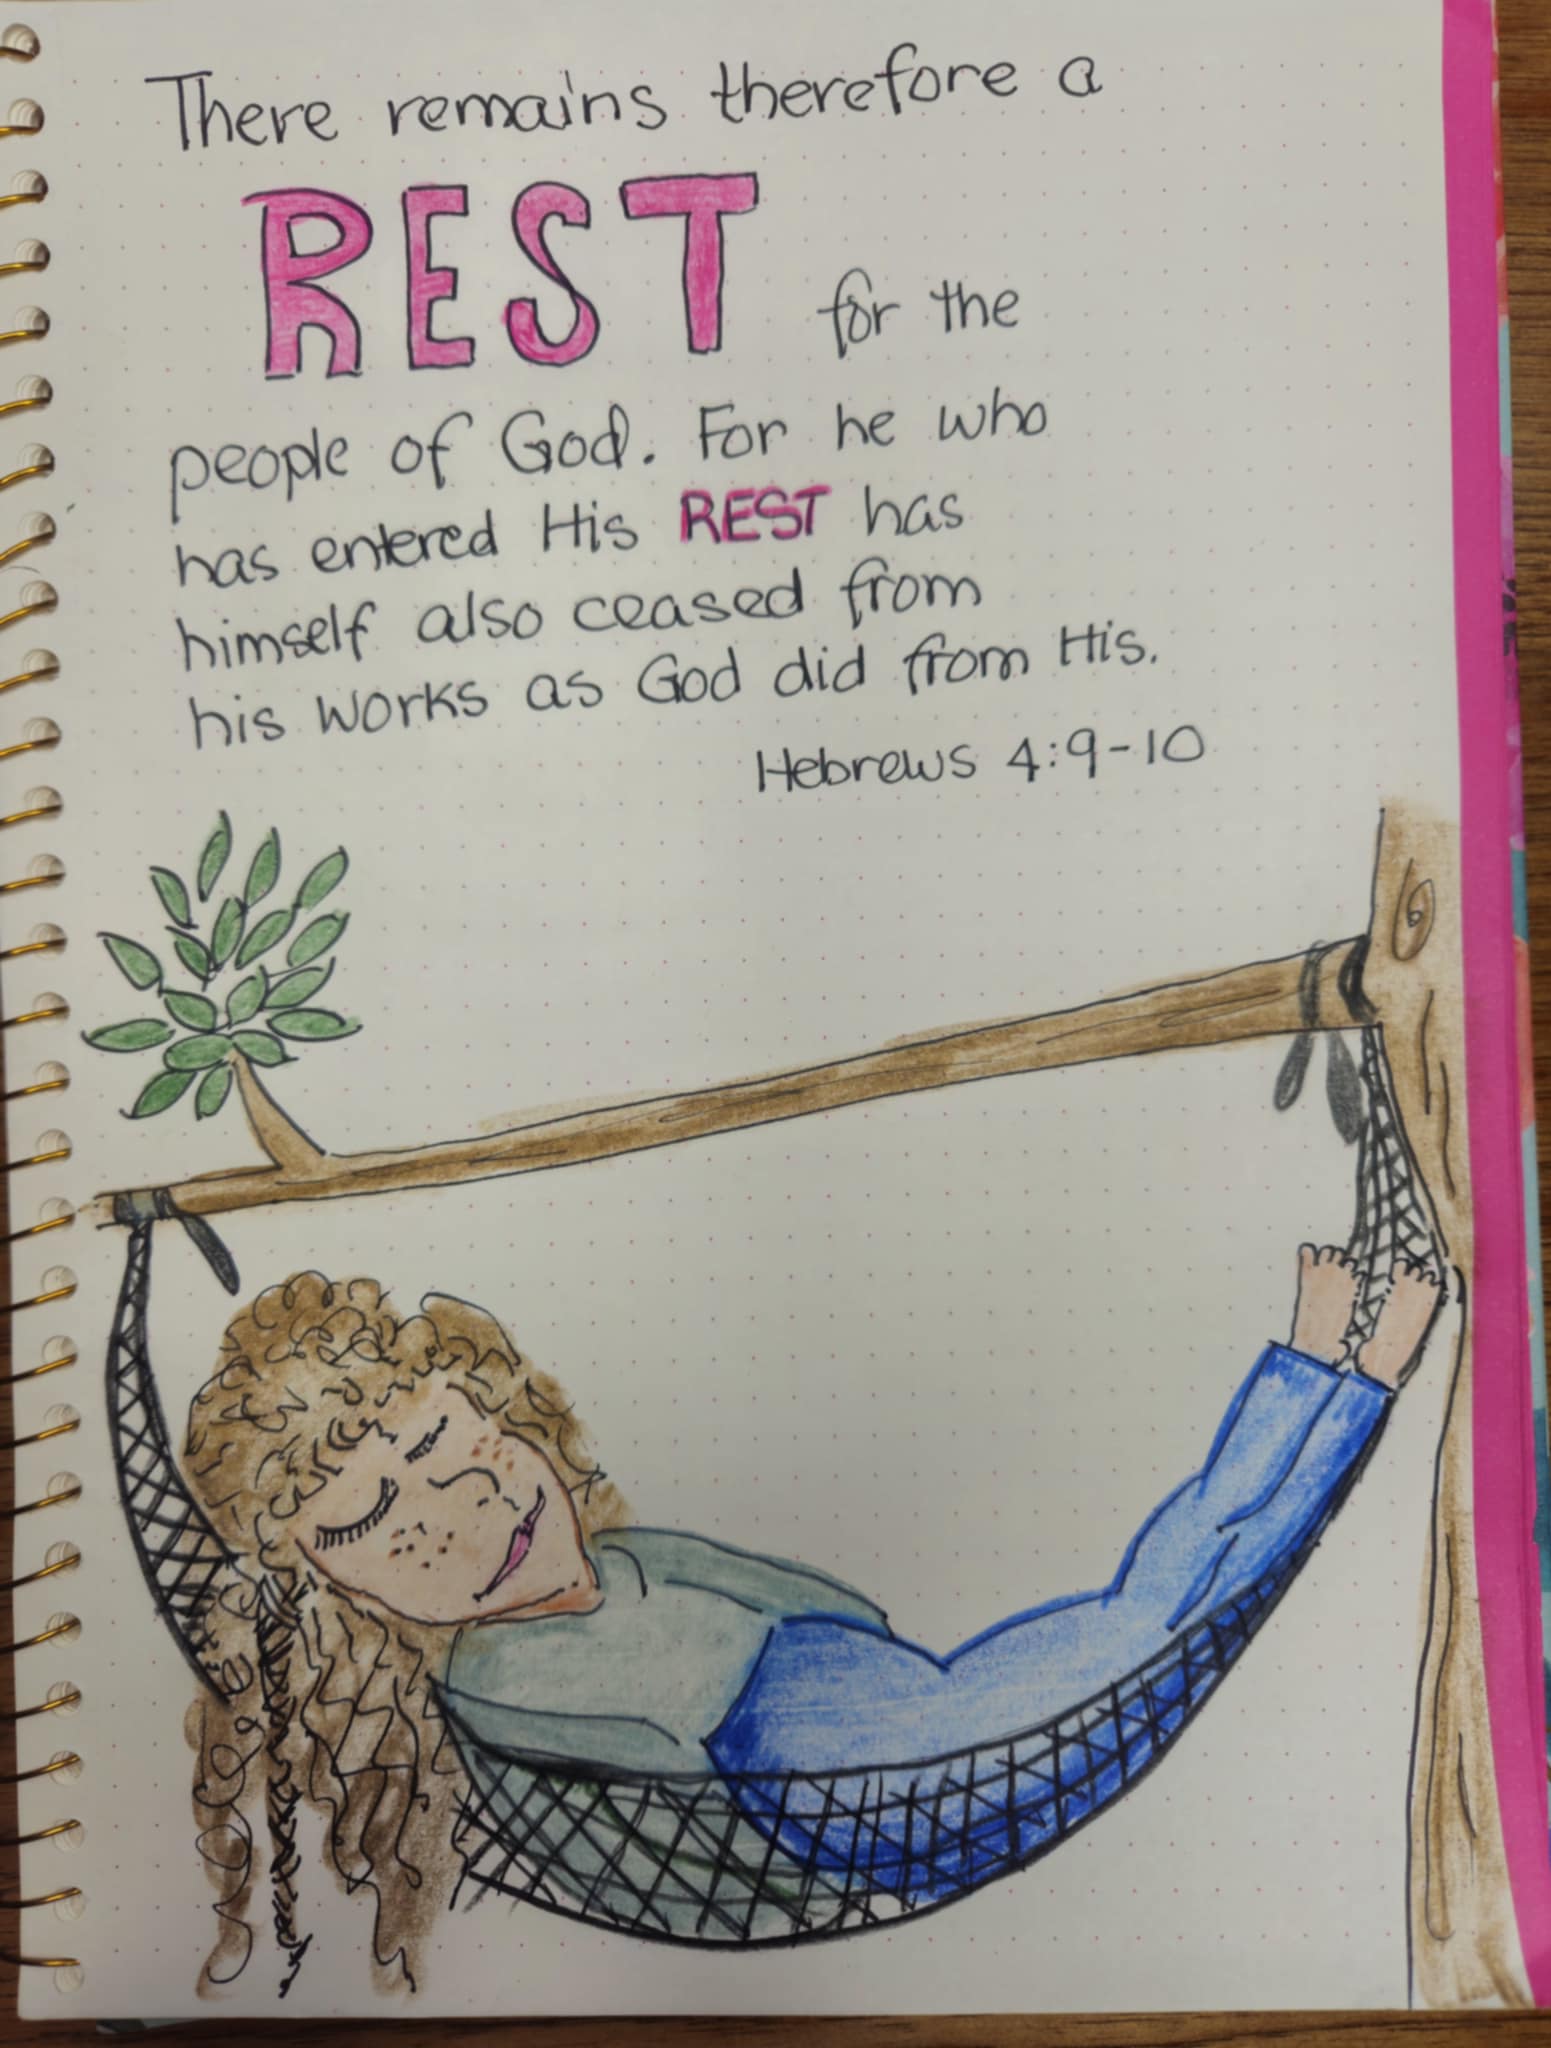 There remains therefore a
REST for the
people of God. For he who
has entered His REST has
himself also ceased from
his works as God did from His.
Hebrews 4:9-10